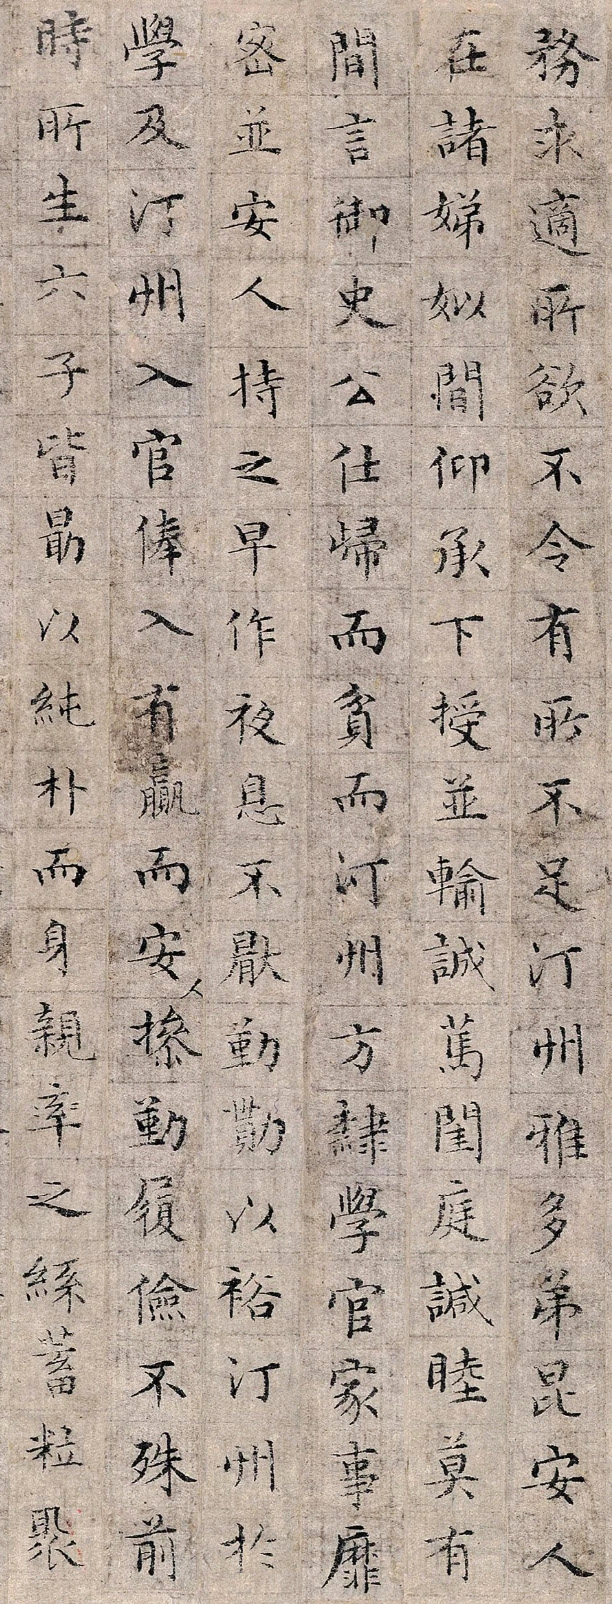 務求適所欲不令有所不足汀州雅多弟昆安人
在諸娣姒間仰承下授並輸誠篤閨庭諴睦莫有
間言御史公仕歸而貧而汀州方隸學官家事靡
密並安人持之早作夜息不厭勤勩以裕汀州於
學及汀州入官俸入有贏而安人操勤履儉不殊前
時所生六子皆勗以純朴而身親率之絲蓄粒聚